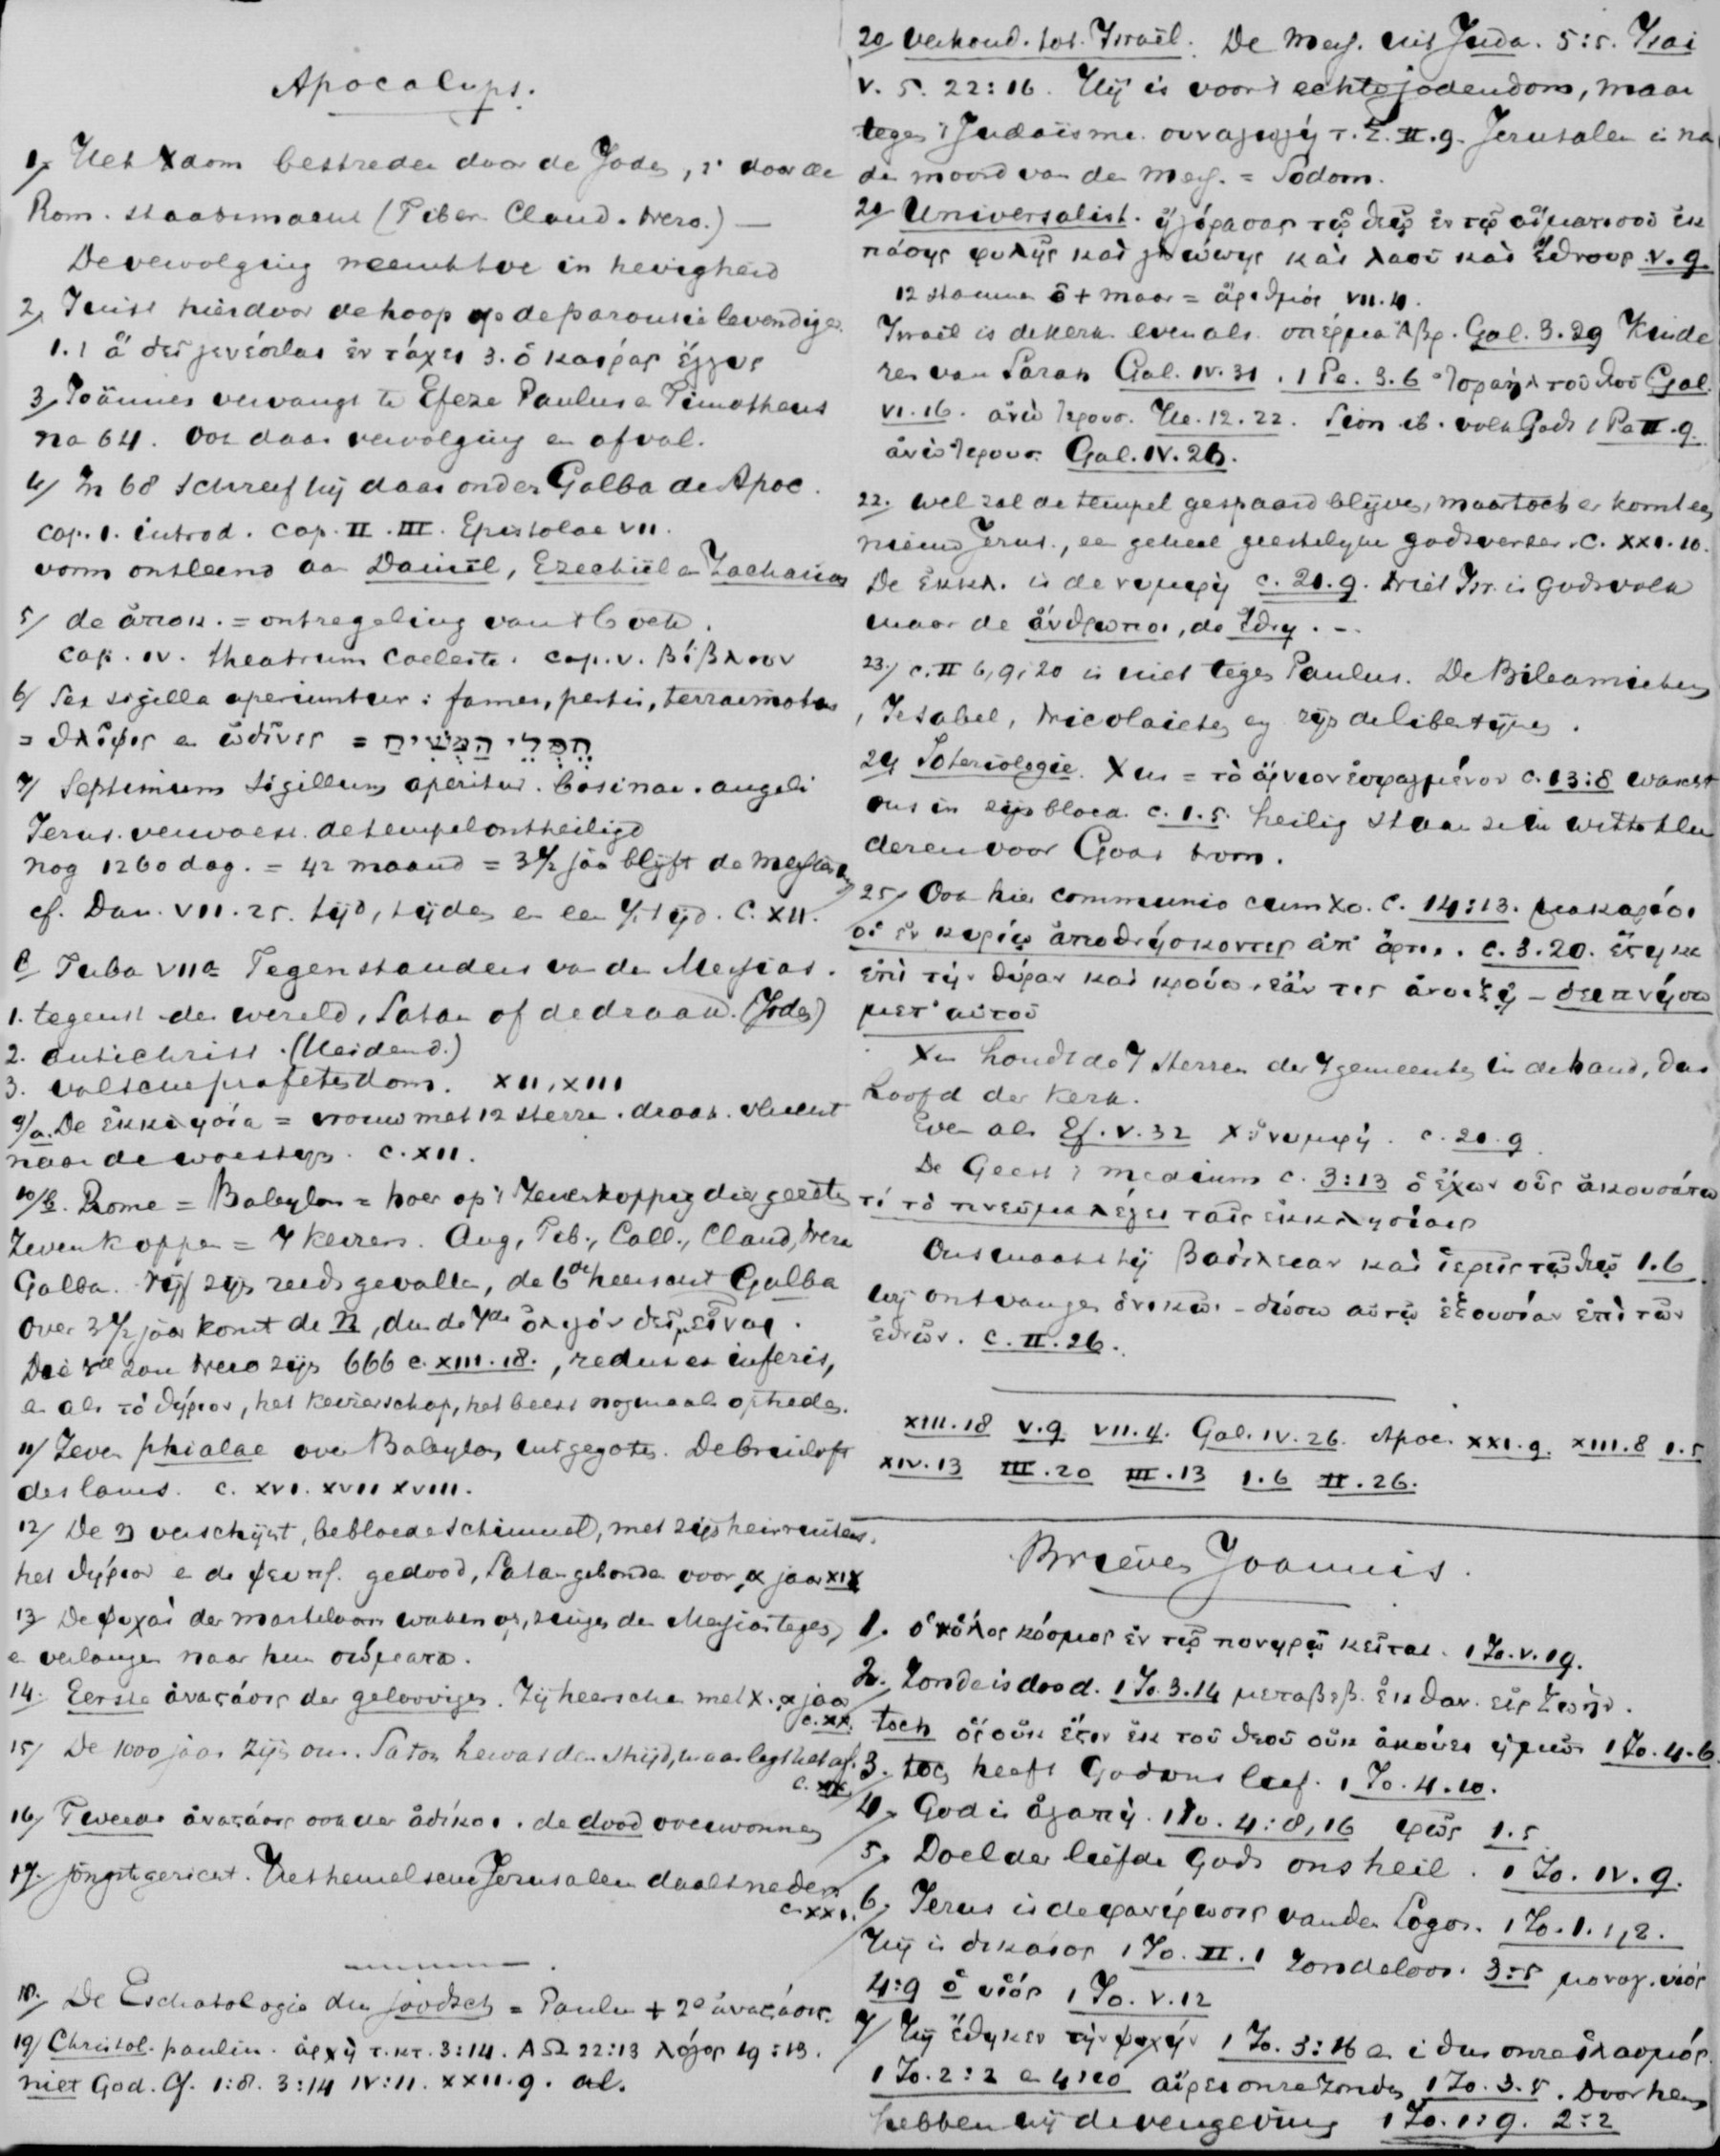 Apocalyps.
1/ Het Xdom bestreden door de Joden, & door de
Rom. staatsmacht (Tiber. Claud. Nero.) —
De vervolging neemt toe in hevigheid
2/ Juist hierdoor de hoop op de parousie levendiger.
1.1 ἃ δεῖ γενέσθαι ἐν τάχει 3. ὁ καιρὸς ἐγγύς
3/ Joännes vervangt te Efeze Paulus en Timotheus
na 64. Ook daar vervolging en afval.
4/ In 68 schreef hij daar onder Galba de Apoc.
cap. 1. introd. cap. II. III. Epistolae VII.
vorm ontleend aan Daniël, Ezechiël en Zacharias
5/ de ἀποκ. = ontzegeling van 't boek.
cap. IV. theatrum coeleste. cap. V. βίβλιον
6/ Sex sigilla aperiuntur: fames, pestis, terraemotus
= θλῖψις en ὠδῖνες = חֶבְלֵי הַמָּשִׁיחַ
7/ Septimum sigillum aperitur. bazinae. angeli
Jerus. verwoest. de tempel ontheiligd
nog 1260 dag. = 42 maand = 3½ jaar blijft de Messias
cf. Dan. VII. 25. tijd, tijden en een ½ tijd. C. XII.
8/ Tuba VIIa Tegenstanders van den Messias.
1. tegenst. der wereld, Satan of de draak. (Joden)
2. antichrist. (Heidend.)
3. valsche profetendom. XII, XIII
9/a. De ἐκκλησία = vrouw met 12 sterren. draak. vlucht
naar de woestijn. C. XII.
10/b. Rome = Babylon = hoer op 't zevenkoppig dier gezeten
Zeven koppen = 7 keizers. Aug, Tib., Call., Claud, Nero
Galba. Vijf zijn reeds gevallen, de 6de heerscht Galba
Over 3½ jaar komt de מ, dus de 7de ὀλίγον δεῖ μεῖναι.
De 8ste zou Nero zijn 666 c. XIII. 18., redux ex inferis,
en als τὸ θηρίον, het keizerschap, het beest nogmaals optreden.
11/ Zeven phialae over Babylon uitgegoten. De bruiloft
des lams. C. XVI. XVII XVIII.
12/ De מ verschijnt, bebloede schimmel, met zijn heirruiters.
het θηρίον en de ψευπρ. gedood, Satan gebonden voor α jaar XIX
13/ De ψυχαὶ der martelaren waken op, zingen den Messias tegen,
en verlangen naar hun σώματα.
14. Eerste ἀνάστασις der geloovigen. Zij heerschen met X. α jaar
c. XX.
15/ De 1000 jaar zijn om. Satan hervat den strijd, maar legt het af.
c. XX.
16/ Tweede ἀνάστασις ook der ἄδικοι. de dood overwonnen
17. jongste gericht. Het hemelsche Jerusalem daalt neder.
c. XXI.
18. De Eschatologie dus joodsch = Paulus + 2e ἀνάστασις.
19/ Christol. paulin. ἀρχὴ τ. κτ. 3:14. ΑΩ 22:13 λόγος 19:13.
niet God. Cf. 1:8. 3:14 IV:11. XXII. 9. al.
20/ verhoud. tot Israël. De Mess. uit Juda. 5:5. Isai
V. 5. 22:16. Hij is voor 't echte jodendom, maar
tegen 't Judaïsme. συναγωγὴ τ. Σ. II. 9. Jerusalem is na
den moord van den Mess. = Sodom.
21/ Universalist. ἠγόρασας τῷ θεῷ ἐν τῷ αἵματί σου ἐκ
πάσης φυλῆς καὶ γλώσσης καὶ λαοῦ καὶ ἔθνους V. 9.
12 stammen + maar = ἀριθμός VII. 4.
Israël is de kerk even als σπέρμα Ἀβρ. Gal. 3. 29 Kinde
ren van Sarah Gal. IV. 31. 1 Pe. 3. 6 Ἰσραὴλ τοῦ θεοῦ Gal.
VI. 16. ἄνω Ἱερουσ. He. 12. 22. Sion ib. volk Gods 1 Pe II. 9.
ἄνω Ἱερουσ. Gal. IV. 26.
22. wel zal de tempel gespaard blijven, maar toch er komt een
nieuw Jerus., een geheel geestelijke godsverker. C. XXI. 10.
De ἐκκλ. is de νύμφη c. 21. 9. Niet Isr. is Gods volk
maar de ἄνθρωποι, de ἔθνη. –
23/ c. II 6, 9, 20 is niet tegen Paulus. De Bileamieten
, Jesabel, Nicolaieten zijn de libertijnen.
24/ Soteriologie. Xus = τὸ ἀρνίον ἐσφαγμένον c. 13:8 wascht
ons in zijn bloed. c. 1. 5. heilig staan ze in witte klee
deren voor Gods troon.
25/ Ook hier communio cum Xo. C. 14:13. μακάριοι
οἱ ἐν κυρίῳ ἀποθνήσκοντες ἀπ' ἄρτι. c. 3. 20. ἕστηκα
ἐπὶ τὴν θύραν καὶ κρούω, ἐάν τις ἀνοίξῃ – δειπνήσω
μετ' αὐτοῦ
Xus houdt de 7 sterren der 7 gemeenten in de hand, dus
hoofd der kerk.
Even als Ef. V. 32 X νύμφη. c. 21. 9
De Geest 't medium c. 3:13 ὁ ἔχων οὖς ἀκουσάτω
τί τὸ πνεῦμα λέγει ταῖς ἐκκλησίαις
Ons maakt hij βασίλειαν καὶ ἱερεῖς τῷ θεῷ 1. 6
wij ontvangen ὁ νικῶν – δώσω αὐτῷ ἐξουσίαν ἐπὶ τῶν
ἐθνῶν. c. II. 26.
XIII. 18 V. 9 VII. 4. Gal. IV. 26. Apoc. XXI. 9. XIII. 8 1. 5
XIV. 13 III. 20 III. 13 1. 6 II. 26.
Brieven Joannis.
1. ὁ ὅλος κόσμος ἐν τῷ πονηρῷ κεῖται. 1 Jo. V. 19.
2. Zonde is dood. 1 Jo. 3. 14 μεταβεβ. ἐκ θαν. εἰς ζωήν.
toch ὃς οὐκ ἔστιν ἐκ τοῦ θεοῦ οὐκ ἀκούει ἡμῶν 1 Jo. 4. 6.
3. toch heeft God ons lief. 1 Jo. 4. 10.
4. God is ἀγάπη. 1 Jo. 4:8, 16 φῶς 1. 5
5. Doel der liefde Gods ons heil. 1 Jo. IV. 9.
6. Jezus is de φανέρωσις van den Logos. 1 Jo. 1. 1, 2.
Hij is δίκαιος 1 Jo. II. 1 Zondeloos. 3:5 μονογ. υἱός
4:9 ὁ υἱός 1 Jo. V. 12
7/ Hij ἔθηκεν τὴν ψυχήν 1 Jo. 3:16 en is dus onze ἱλασμός
1 Jo. 2:2 en 4:10 αἴρει onze zonden 1 Jo. 3. 5. Door hem
hebben wij de vergeving 1 Jo. 1:9. 2:2